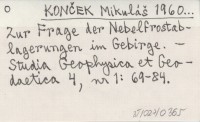 KONČEK Mikuláš 1960...
Zur Frage der Nebelfrostab-
lagerungen im Gebirge. -
Studia Geophysica et Geo-
daetica 4, nr 1: 69-84.